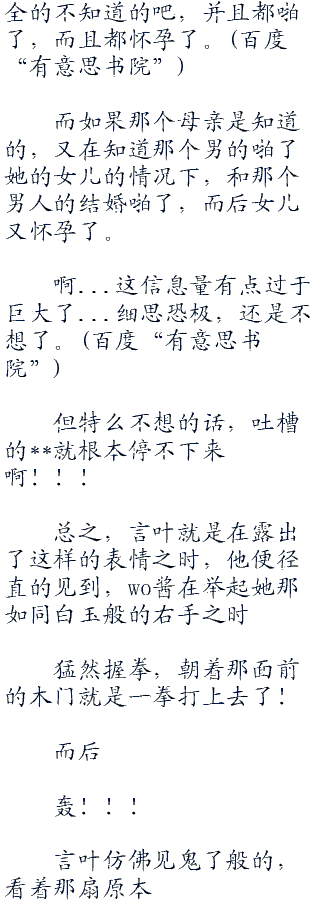 全的不知道的吧，并且都啪
了，而且都怀孕了。(百度
“有意思书院”)
而如果那个母亲是知道
的，又在知道那个男的啪了
她的女儿的情况下，和那个
男人的结婚啪了，而后女儿
又怀孕了。
啊...这信息量有点过于
巨大了...细思恐极，还是不
想了。(百度“有意思书
院”)
但特么不想的话，吐槽
的**就根本停不下来
啊！！！
总之，言叶就是在露出
了这样的表情之时，他便径
直的见到，wo酱在举起她那
如同白玉般的右手之时
猛然握拳，朝着那面前
的木门就是一拳打上去了！
而后
轰！！！
言叶仿佛见鬼了般的，
看着那扇原本